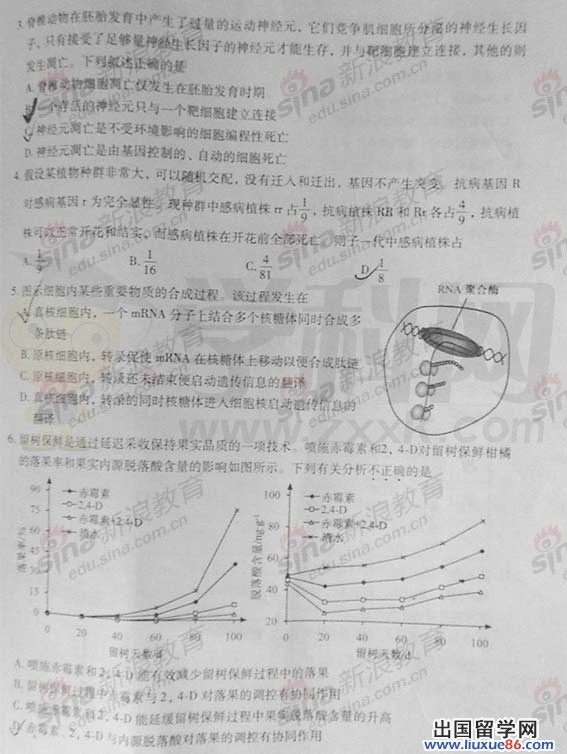 3.脊椎动物在胚胎发育中产生了过量的运动神经元，它们竞争肌细胞所分泌的神经生长因
子，只有接受了足够量神经生长因子的神经元才能生存，并与靶细胞建立连接，其他的则
发生凋亡。下列叙述正确的是
A.脊椎动物细胞凋亡仅发生在胚胎发育时期
B.一个存活的神经元只与一个靶细胞建立连接
C.神经元凋亡是不受环境影响的细胞编程性死亡
D.神经元凋亡是由基因控制的、自动的细胞死亡
4.假设某植物种群非常大，可以随机交配，没有迁入和迁出，基因不产生突变。抗病基因 R
对感病基因 r 为完全显性。现种群中感病植株 rr 占1/9，抗病植株 RR 和 Rr 各占4/9，抗病植
株可以正常开花和结实，而感病植株在开花前全部死亡。则子一代中感病植株占
A.1/9 B.1/16 C.4/81 D.1/8
5.图示细胞内某些重要物质的合成过程。该过程发生在
RNA 聚合酶
A.真核细胞内，一个 mRNA 分子上结合多个核糖体同时合成多
条肽链
B.原核细胞内，转录促使 mRNA 在核糖体上移动以便合成肽链
C.原核细胞内，转录还未结束便启动遗传信息的翻译
D.真核细胞内，转录的同时核糖体进入细胞核启动遗传信息的
翻译
6.留树保鲜是通过延迟采收保持果实品质的一项技术。喷施赤霉素和2, 4-D对留树保鲜柑橘
的落果率和果实内源脱落酸含量的影响如图所示。下列有关分析不正确的是
落果率/%
90
75
60
45
30
15
0
赤霉素
2,4-D
赤霉素+2,4-D
清水
0 20 40 60 80 100
留树天数/d
脱落酸含量/ng·g⁻¹
100
80
60
40
20
0
赤霉素
2,4-D
赤霉素+2,4-D
清水
0 20 40 60 80 100
留树天数/d
A.喷施赤霉素和2, 4-D 能有效减少留树保鲜过程中的落果
B.留树保鲜过程中赤霉素与 2, 4-D 对落果的调控有协同作用
C.喷施赤霉素和2, 4-D 能延缓留树保鲜过程中果实脱落酸含量的升高
D.赤霉素、2, 4-D 与内源脱落酸对落果的调控有协同作用
sina新浪教育
edu.sina.com.cn
学科网
www.zxxk.com
出国留学网
www.liuxue86.com